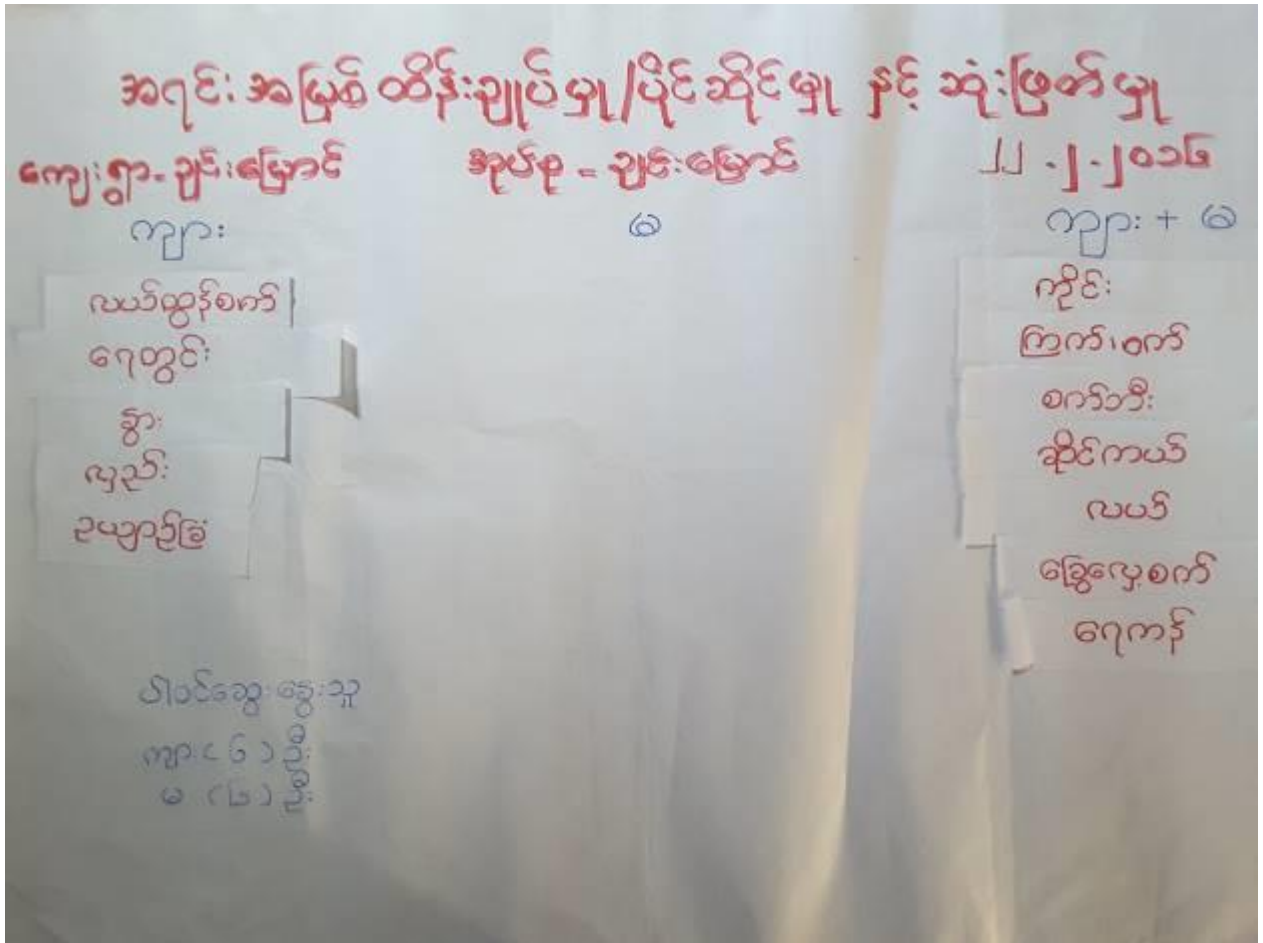 အရင်းအမြစ်ထိန်းချုပ်မှု/ပိုင်ဆိုင်မှု နှင့် ဆုံးဖြတ်မှု
ကျေးရွာ - ချင်းမြောင် အုပ်စု - ချင်းမြောင် ၂၂.၂.၂၀၁၆
ကျား မ ကျား + မ
လယ်ထွန်စက်
ရေတွင်း
နွား
လှည်း
ဥယျာဉ်ခြံ
ကိုင်း
ကြက်၊ဝက်
စက်ဘီး
ဆိုင်ကယ်
လယ်
ခြွေလှေ့စက်
ရေကန်
ပါဝင်ဆွေးနွေးသူ
ကျား ( ၆ ) ဦး
မ ( ၉ ) ဦး